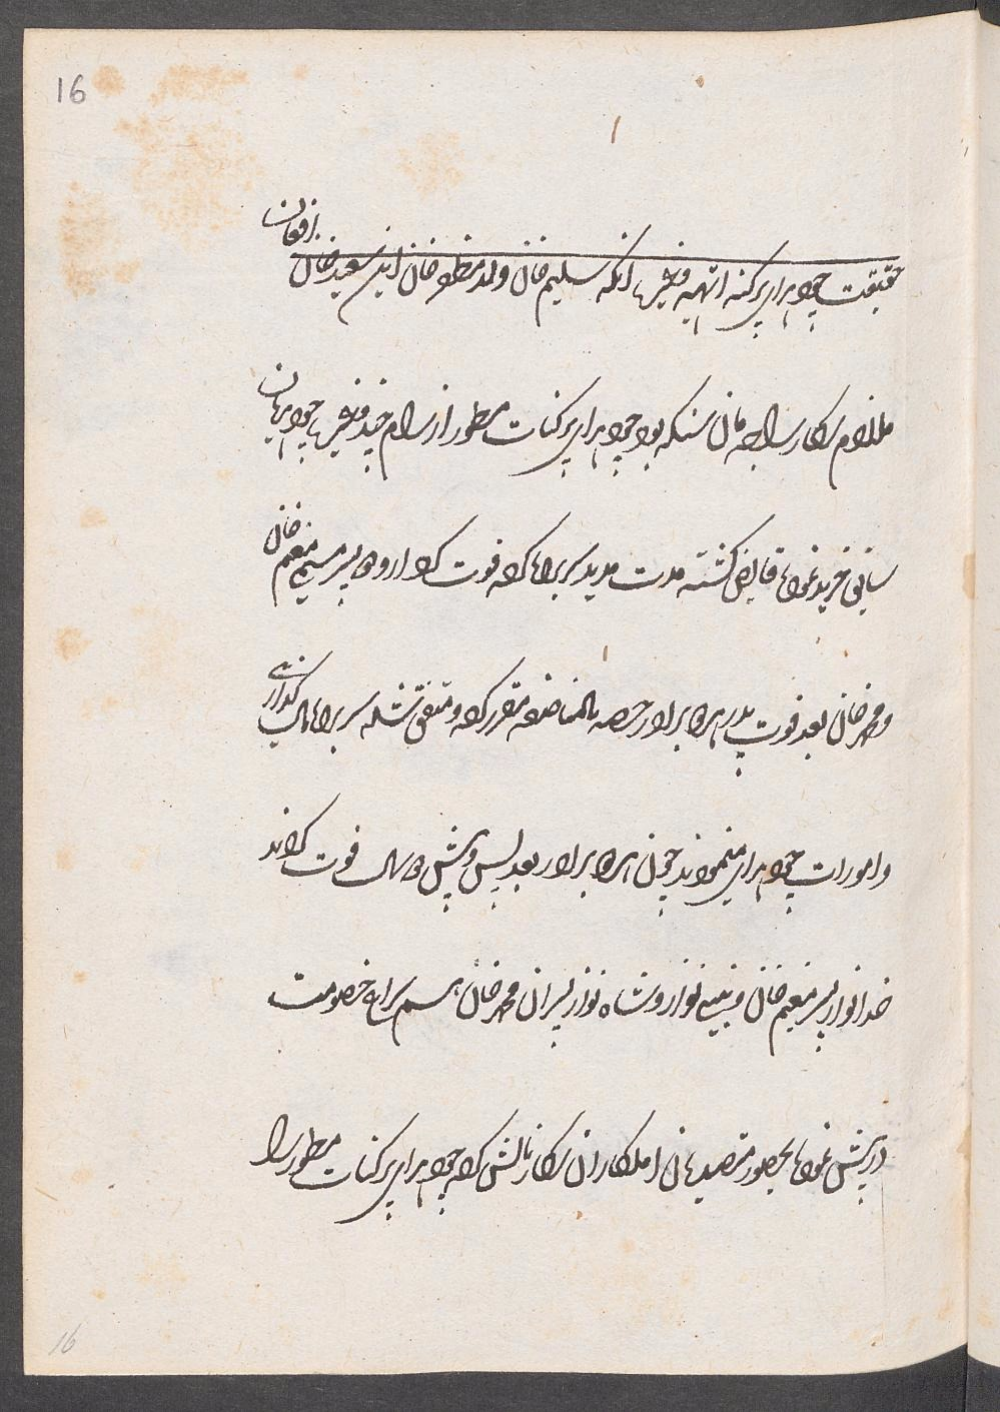 16
۱
حقیقت چودهرای پرکنه اتهیه وغیره انکه سلیم خان ولد مظفر خان ابن سعید خان افغان
ملازم سرکار راجه مان سنکه بود چودهرای پرکنات مسطور از رام چند وغیره چودهریان
سابق خرید نموده قابض کشته مدت مدید سربراه کرده فوت کرد ازو دو پسر مسمی منعم خان
و محمد خان بعد فوت پدر هر دو برادر حصه بالمناصفه مقرر کرده و متفق شده سربراه مالکذاری
و امورات چودهرای مینمودند چون هر دو برادر بعد پس و پیش دو سال فوت کردند
خدانواز پسر منعم خان و نواز و شاه نواز پسران محمد خان براه خصومت
در پیش نموده بحضور متصدیان املکاران سرکار نالش کرده چودهرای پرکنات مسطور را
16